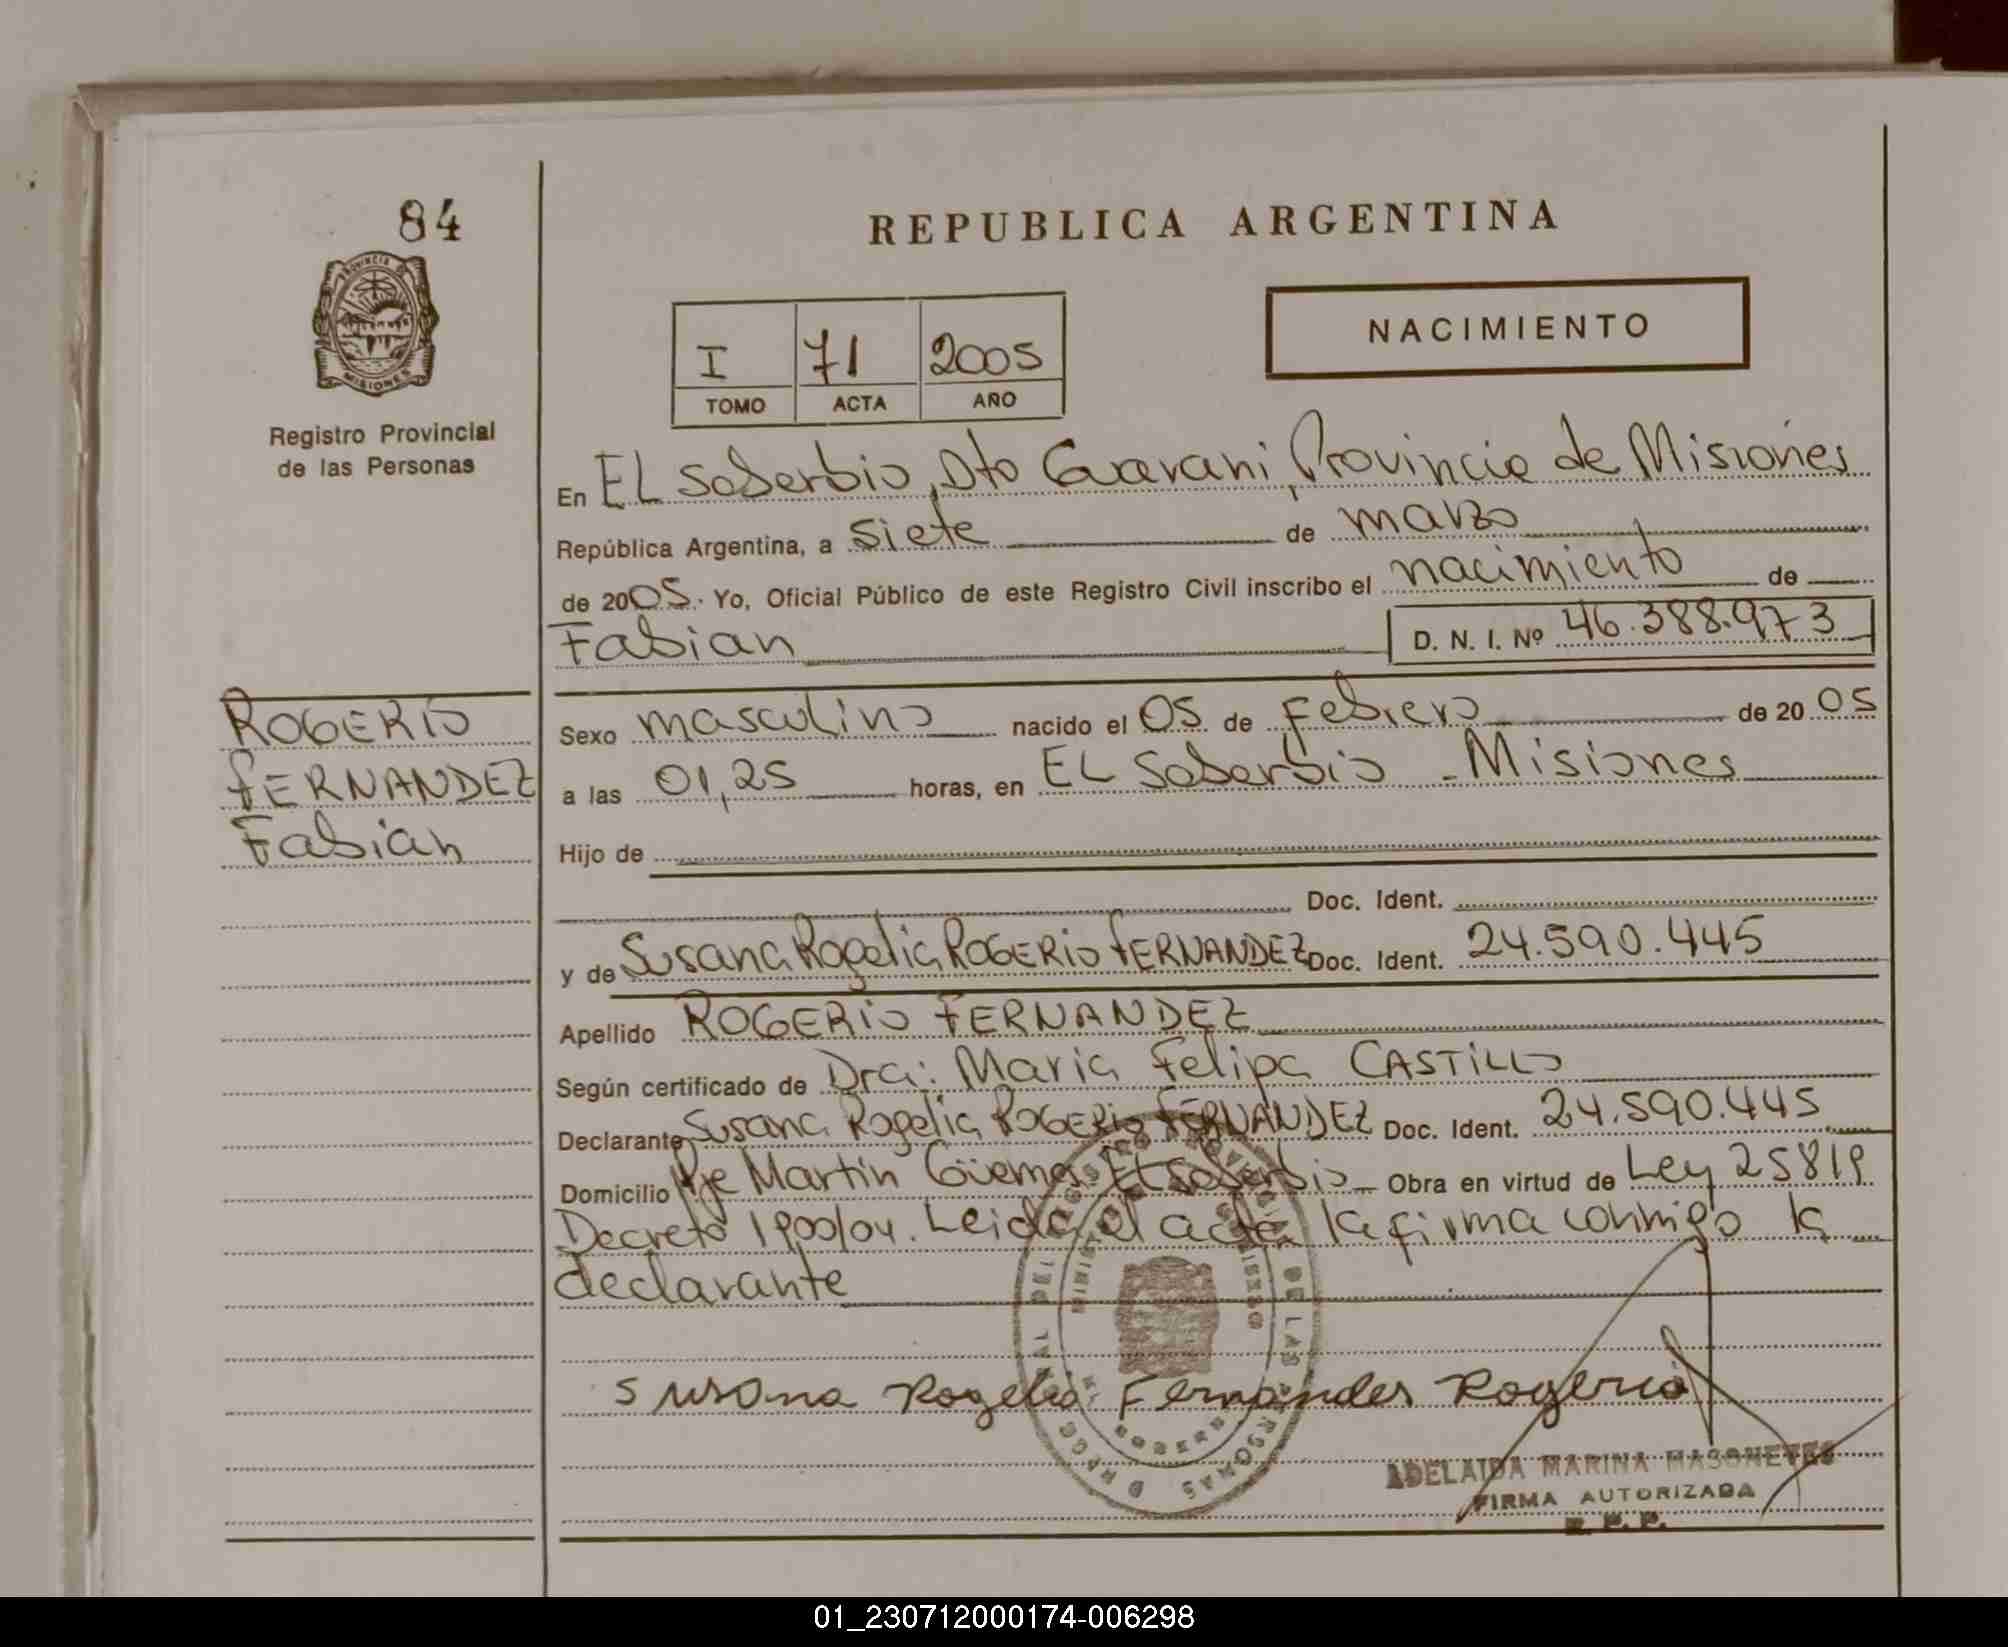 84
REPUBLICA ARGENTINA
PROVINCIA DE
MISIONES
Registro Provincial
de las Personas
NACIMIENTO
I 71 2005
TOMO ACTA AÑO
En EL Soberbio, Dto Guarani, Provincia de Misiones
República Argentina, a siete de marzo
de 2005. Yo, Oficial Público de este Registro Civil inscribo el nacimiento de
Fabian D. N. I. Nº 46.388.973
ROGERIO
FERNANDEZ
Fabian
Sexo masculino nacido el 05 de Febrero de 2005
a las 01,25 horas, en EL Soberbio - Misiones
Hijo de
Doc. Ident.
y de Susana Rogelia ROGERIO FERNANDEZ Doc. Ident. 24.590.445
Apellido ROGERIO FERNANDEZ
Según certificado de Dra: Maria Felipa CASTILLO
Declarante Susana Rogelia ROGERIO FERNANDEZ Doc. Ident. 24.590.445
Domicilio Pje Martín Güemes El Soberbio Obra en virtud de Ley 25819
Decreto 1900/04. Leida el acta la firma conmigo la
declarante
Susana Rogelia Fernandes Rogerio
ADELAIDA MARINA
FIRMA AUTORIZADA
R. P. P.
01_230712000174-006298